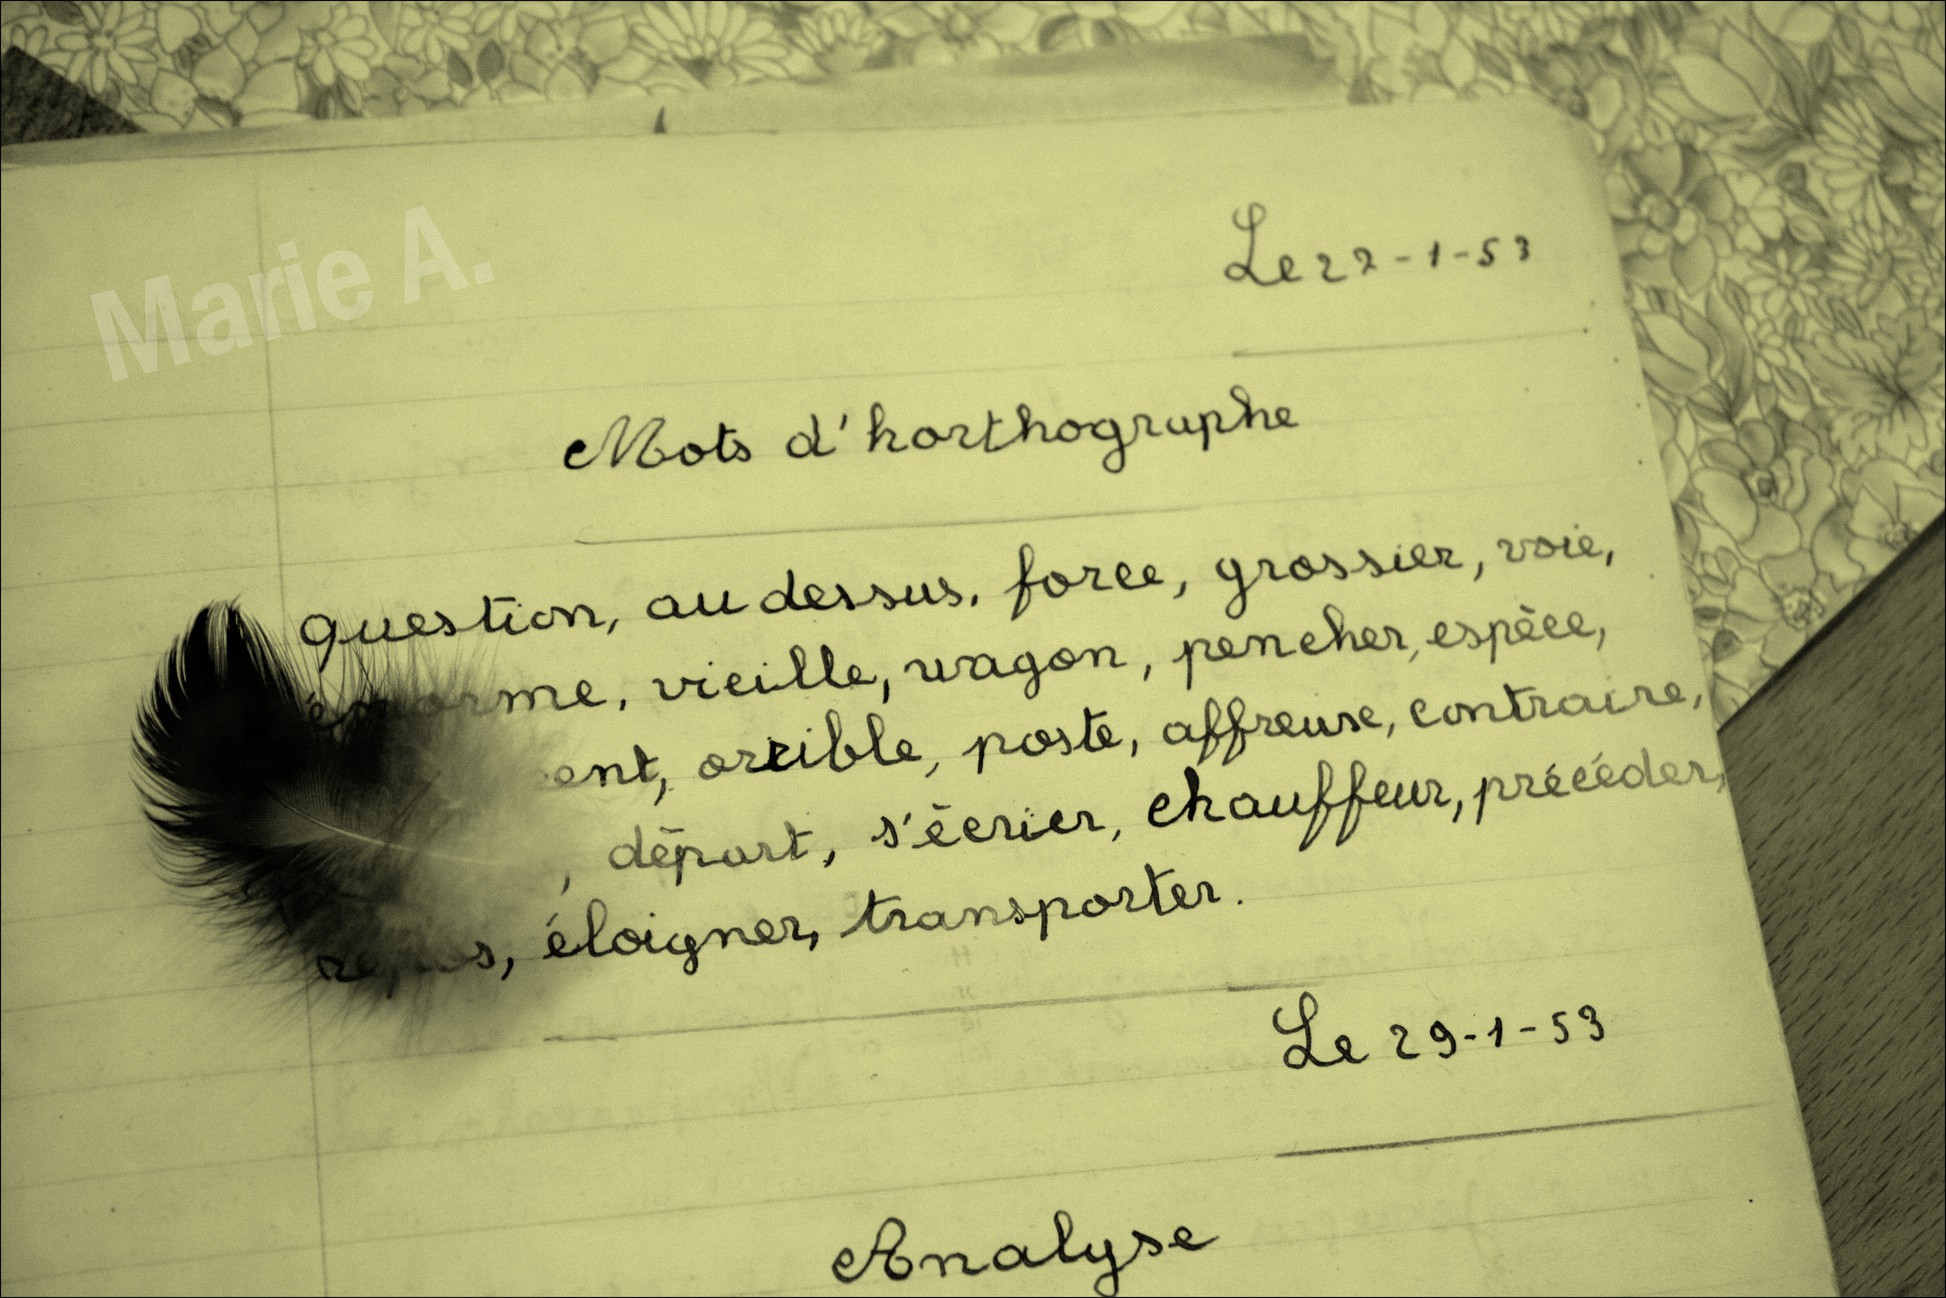 Marie A.
Le 22-1-53
Mots d'horthographe
question, au dessus, force, grossier, voie,
énorme, vieille, wagon, pencher, espèce,
orrible, poste, affreuse, contraire,
, départ, s'écrier, chauffeur, précéder,
éloigner, transporter.
Le 29-1-53
Analyse